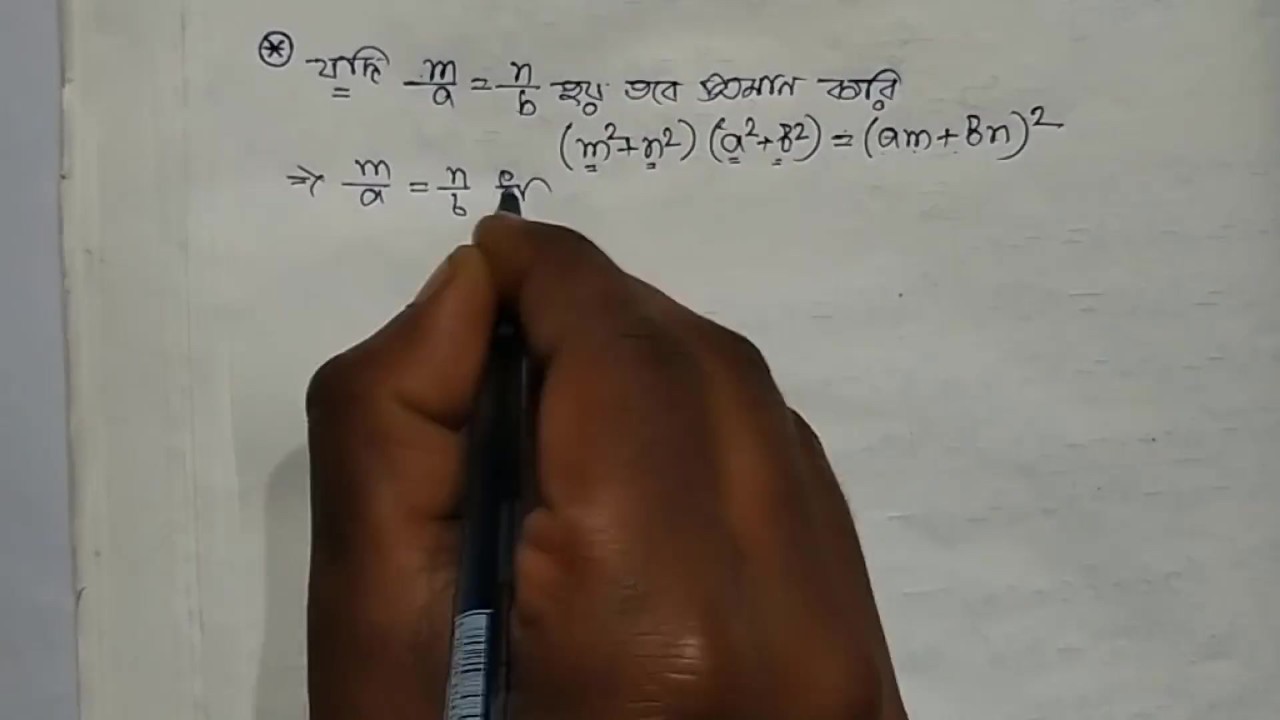 ⊛ যদি m/a = n/b হয় তবে প্রমান করি
(m²+n²) (a²+b²) = (am+bn)²
⇒ m/a = n/b